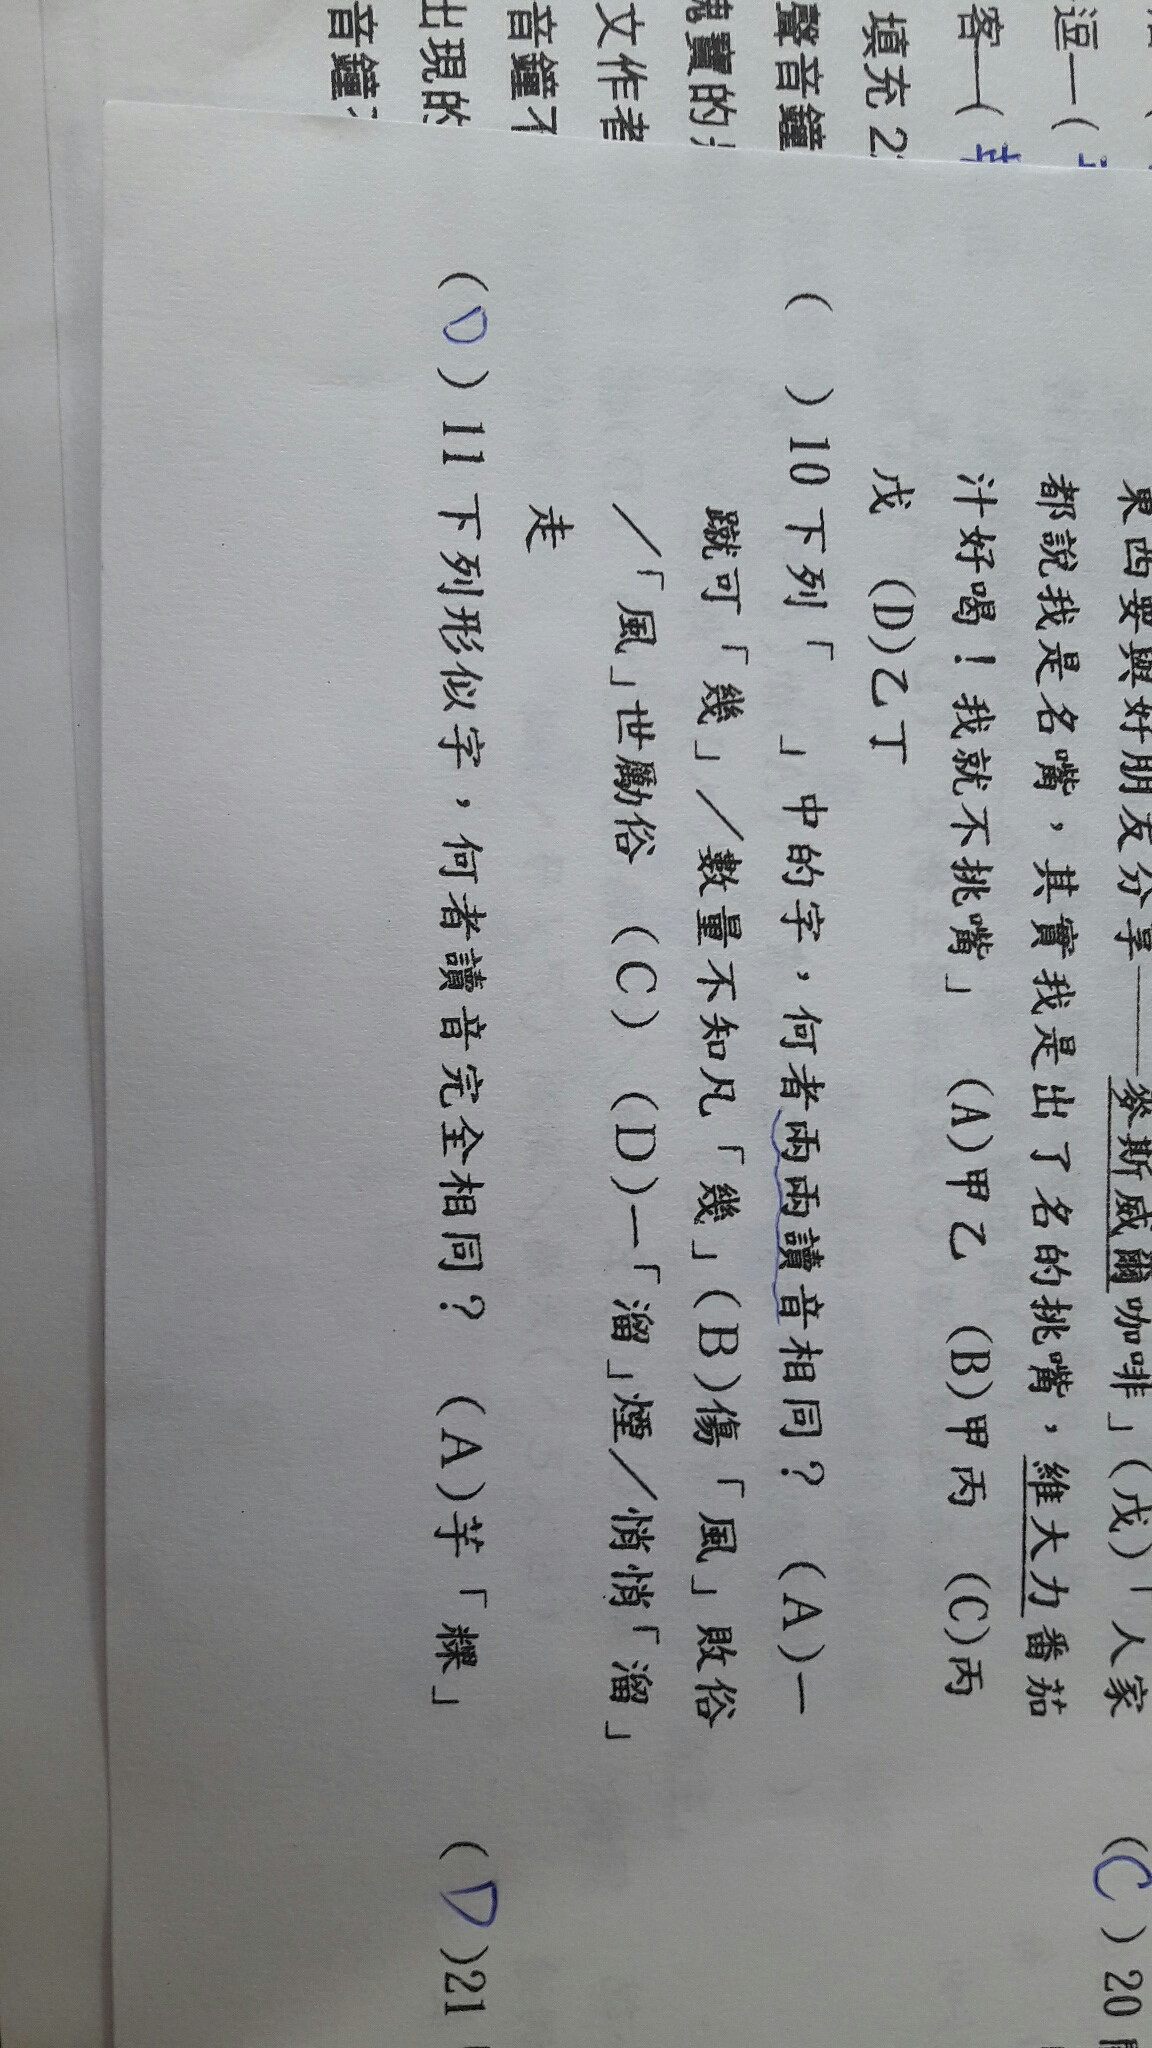 逗—(
客—(
填充 2
聲音鐘
瑰寶的
文作者
音鐘不
出現的
音鐘
東西要與好朋友分享——麥斯威爾咖啡」(戊)「人家
都說我是名嘴，其實我是出了名的挑嘴，維大力番茄
汁好喝！我就不挑嘴」 (A)甲乙 (B)甲丙 (C)丙
戊 (D)乙丁
( )10下列「 」中的字，何者兩兩讀音相同？ (A)一
蹴可「幾」／數量不知凡「幾」(B)傷「風」敗俗
／「風」世勵俗 (C) (D)一「溜」煙／悄悄「溜」
走
(D)11下列形似字，何者讀音完全相同？ (A)芋「粿」
(C)20
(D)21